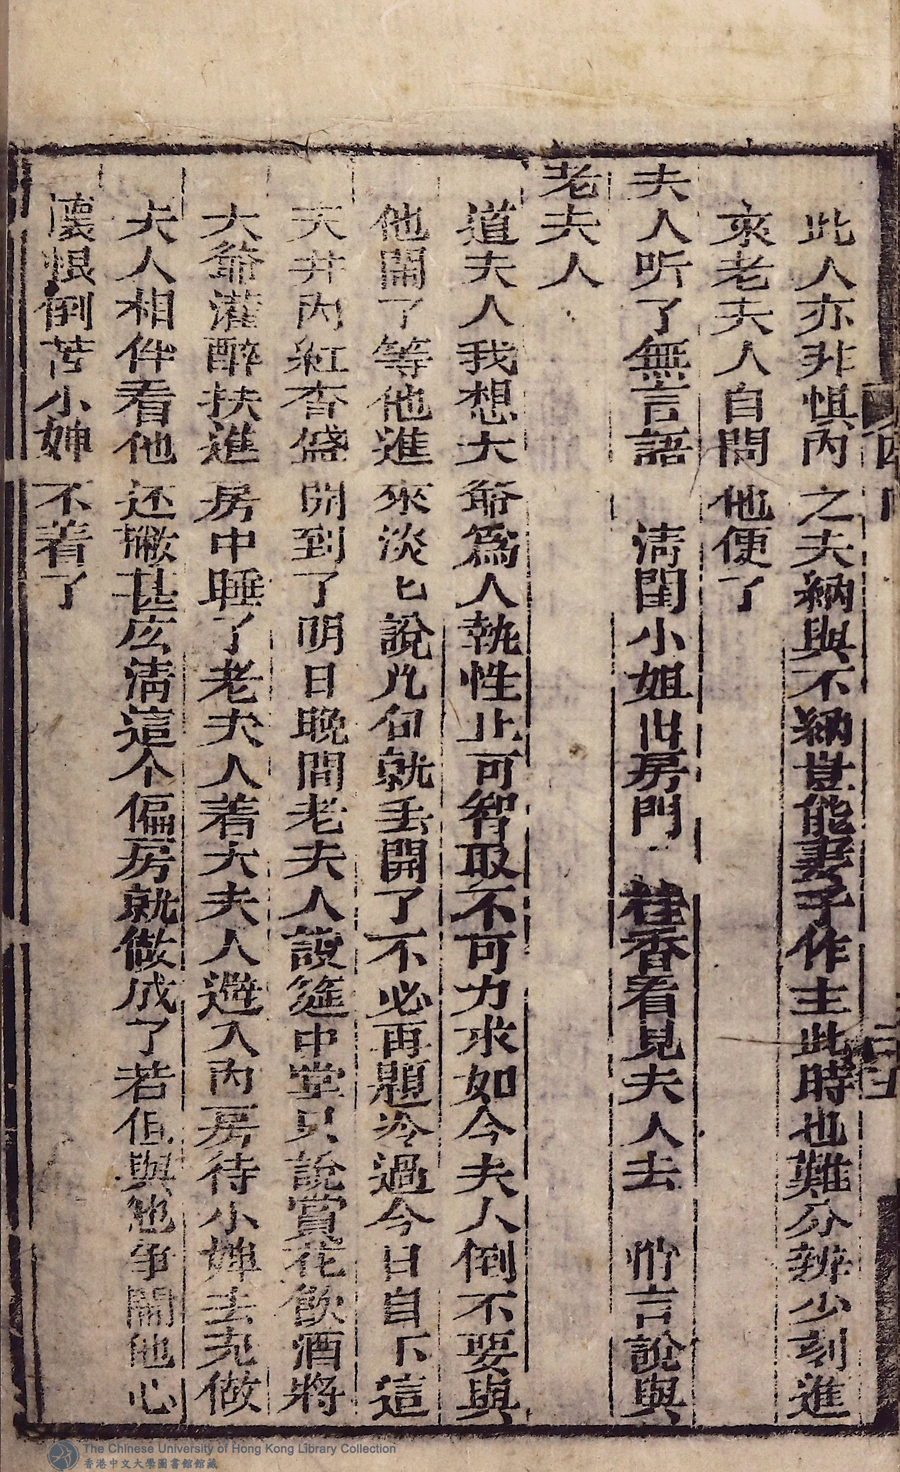 此人亦非惧內之夫納與不納豈能妻子作主此時也難分辨少刻進
來老夫人自問他便了
夫人听了無言語　清閨小姐出房門　桂香看見夫人去　悄言說與
老夫人
道夫人我想大爺爲人執性止可智取不可力求如今夫人倒不要與
他鬧了等他進來淡匕說几句就丟開了不必再題冷過今日自下這
天井內紅杏盛開到了明日晚間老夫人設筵中堂只說賞花飲酒將
大爺灌醉扶進房中睡了老夫人着大夫人避入內房待小婢去充做
夫人相伴看他还撇甚庅清這个偏房就做成了若但與他爭鬧他心
懷恨倒苦小婢不着了
The Chinese University of Hong Kong Library Collection
香港中文大學圖書館館藏